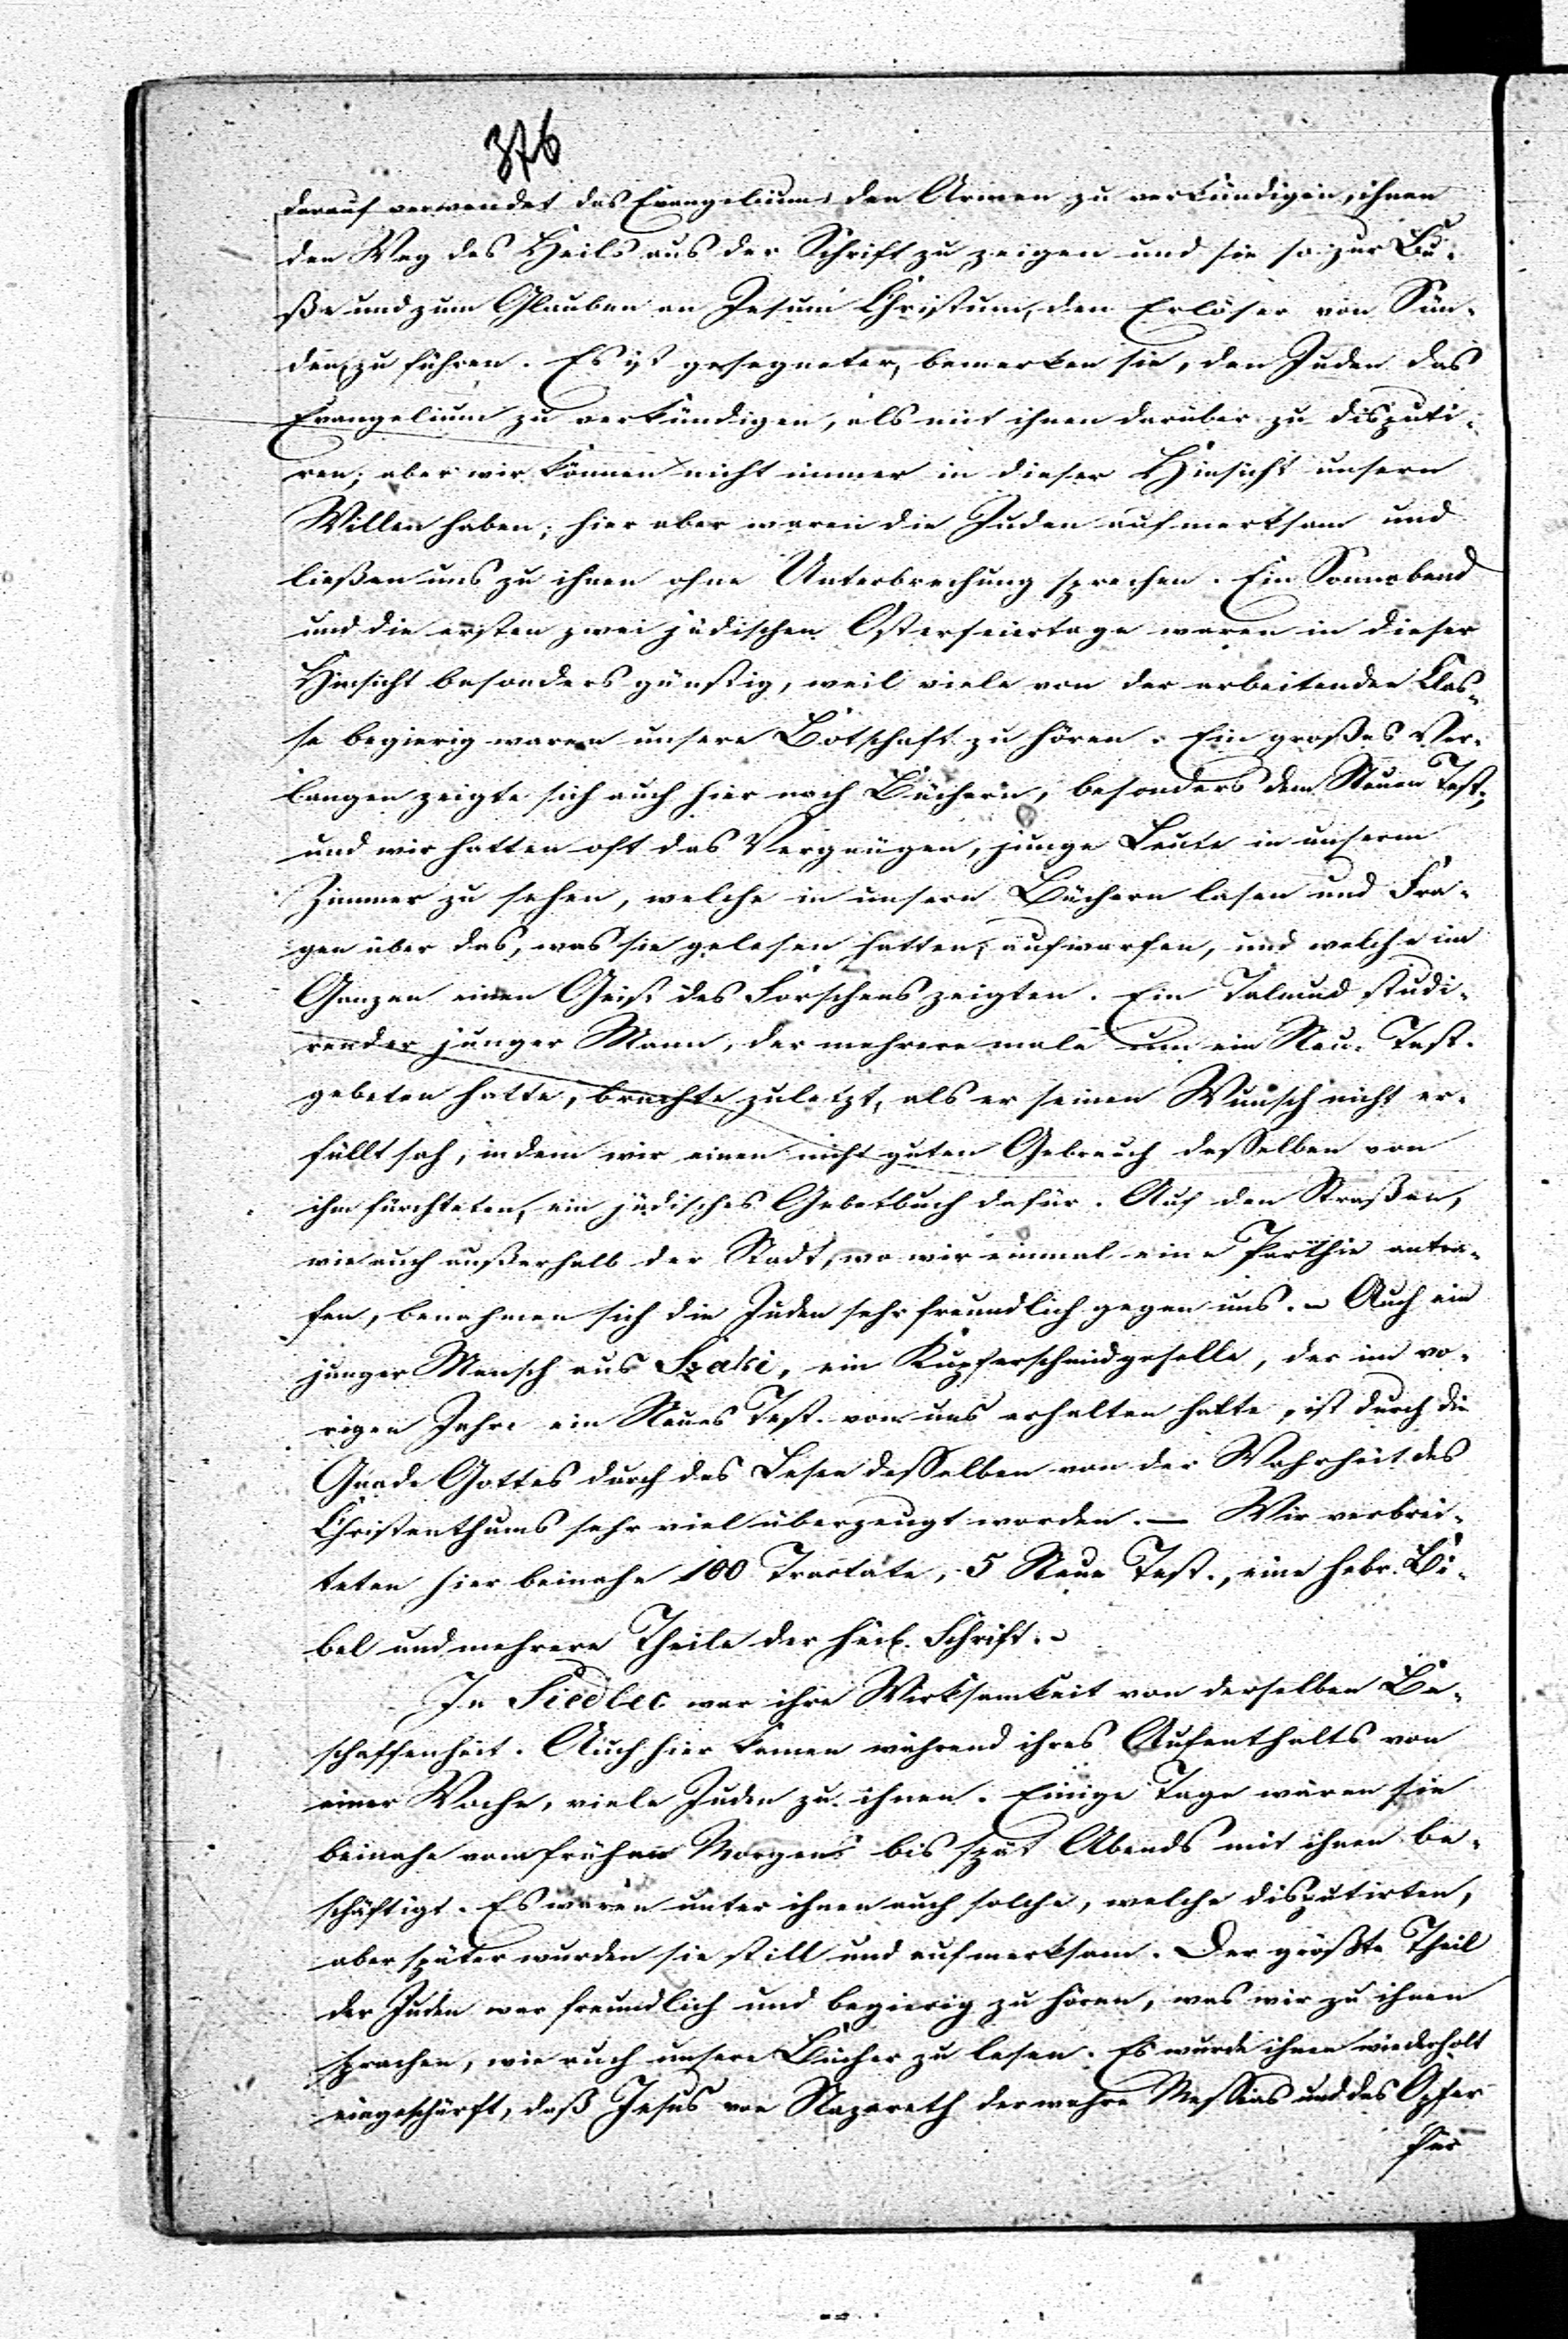 376
darauf verwendet das Evangelium den Armen zu verkündigen, ihnen
den Weg des Heils aus der Schrift zu zeigen und sie so zur Bu-
ße und zum Glauben an Jesum Christum, den Erlöser von Sün-
den, zu führen. Es ist gesegneter, bemerken sie, den Juden das
Evangelium zu verkündigen, als mit ihnen darüber zu disputi-
ren; aber wir können nicht immer in dieser Hinsicht unsern
Willen haben; hier aber waren die Juden aufmerksam und
ließen uns zu ihnen ohne Unterbrechung sprechen. Ein Sonnabend
und die ersten zwei jüdischen Osterfeiertage waren in dieser
Hinsicht besonders günstig, weil viele von der arbeitenden Clas-
se begierig waren unsere Botschaft zu hören. Ein großes Ver-
langen zeigte sich auch hier nach Büchern, besonders dem Neuen Test.,
und wir hatten oft das Vergnügen, junge Leute in unserm
Zimmer zu sehen, welche in unsern Büchern lasen und Fra-
gen über das, was sie gelesen hatten, aufwarfen, und welche im
Ganzen einen Geist des Forschens zeigten. Ein Talmud studi-
render junger Mann, der mehrere male um ein Neu. Test.
gebeten hatte, brachte zuletzt, als er seinen Wunsch nicht er-
füllt sah, indem wir einen nicht guten Gebrauch desselben von
ihm fürchteten, ein jüdisches Gebetbuch dafür. Auf den Straßen,
wie auch außerhalb der Stadt, wo wir einmal eine Parthie antra-
fen, benahmen sich die Juden sehr freundlich gegen uns. – Auch ein
junger Mensch aus Szaki, ein Kupferschmidgeselle, der im vo-
rigen Jahre ein Neues Test. von uns erhalten hatte, ist durch die
Gnade Gottes durch das Lesen desselben von der Wahrheit des
Christenthums sehr viel überzeugt worden. – Wir verbrei-
teten hier beinahe 100 Tractate, 5 Neue Test., eine hebr. Bi-
bel und mehrere Theile der heil. Schrift. –
In Siedlec war ihre Wirksamkeit von derselben Be-
schaffenheit. Auch hier kamen während ihres Aufenthalts von
einer Woche, viele Juden zu ihnen. Einige Tage waren sie
beinahe vom frühen Morgens bis spät Abends mit ihnen be-
schäftigt. Es waren unter ihnen auch solche, welche disputirten,
aber später wurden sie still und aufmerksam. Der größte Theil
der Juden war freundlich und begierig zu hören, was wir zu ihnen
sprachen, wie auch unsere Bücher zu lesen. Es wurde ihnen wiederholt
eingeschärft, daß Jesus von Nazareth der wahre Messias und das Opfer
für